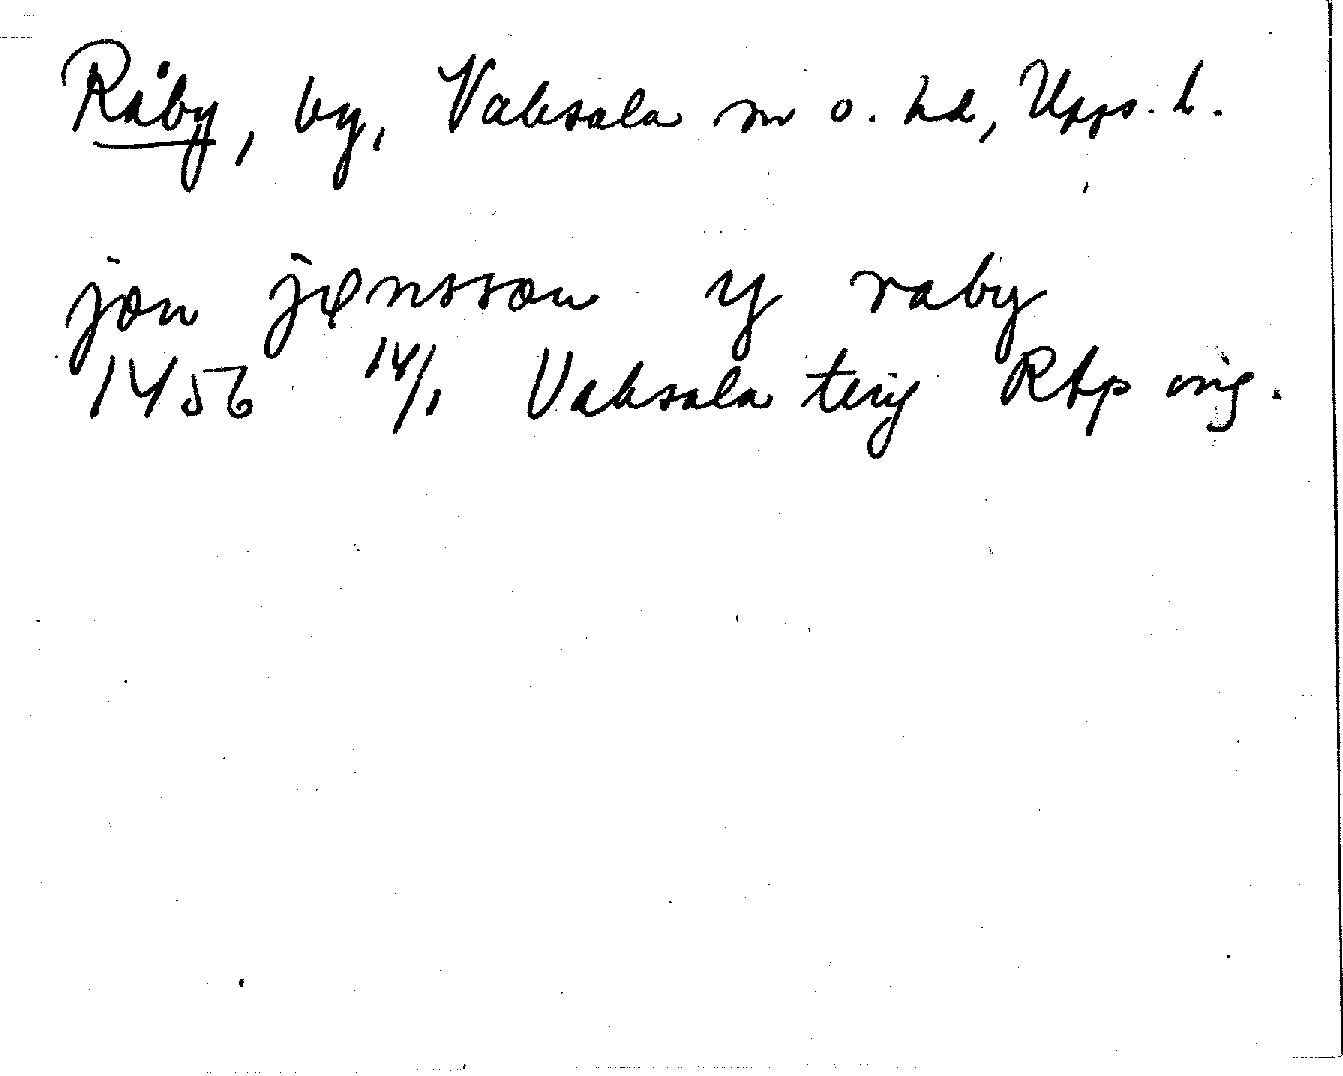 Råby, by, Vaksala sn o. hd, Upps. l.
jon jønsson y raby
1456 14/1 Vaksala ting RAp orig.